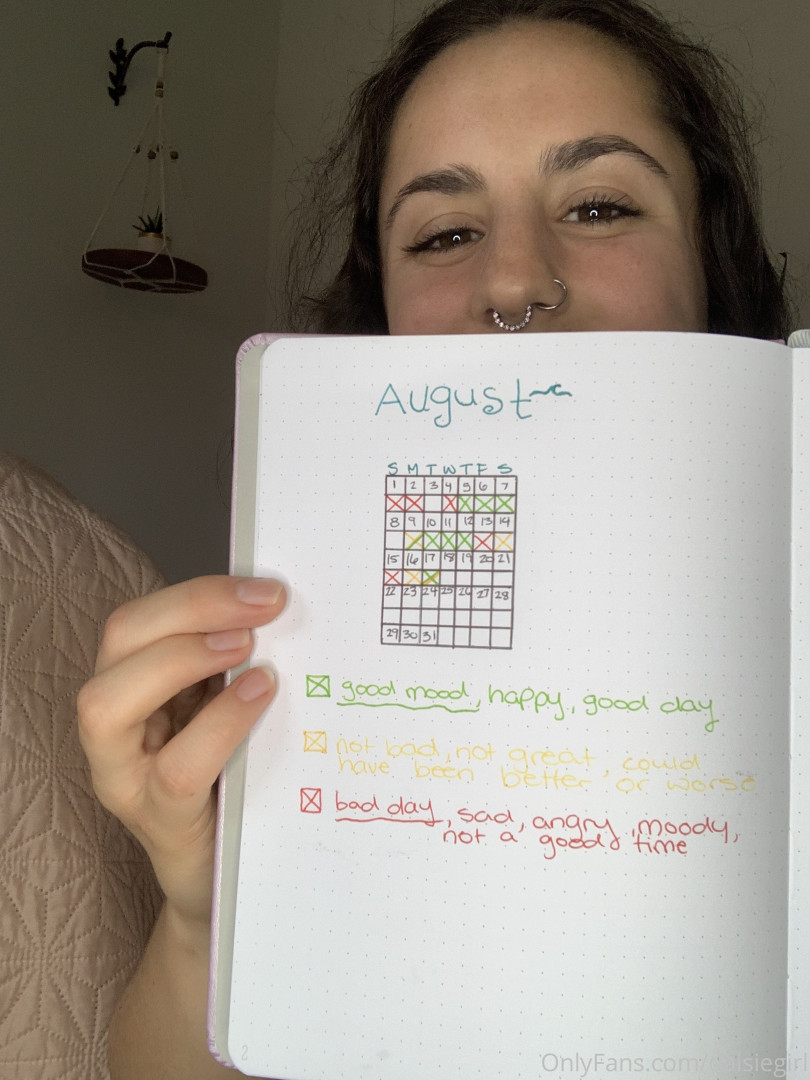 August
S M T W T F S
1 2 3 4 5 6 7
8 9 10 11 12 13 14
15 16 17 18 19 20 21
22 23 24 25 26 27 28
29 30 31
good mood, happy, good day
not bad, not great, could
have been better or worse
bad day, sad, angry, moody,
not a good time
2